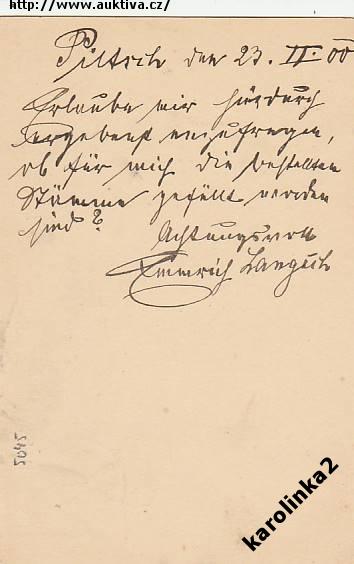 http://www.auktiva.cz/
Piltsch den 23. II. 00
Erlaube mir hirdurch
ergebenst anzufragen,
ob für mich die bestellten
Stämme gefällt worden
sind?
Achtungsvoll
Emmrich
5045
karolinka2